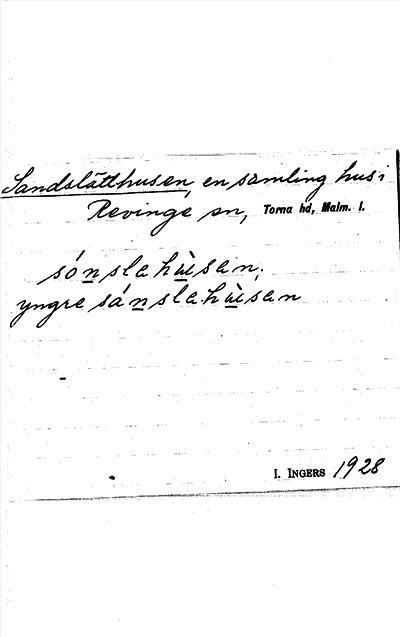 Sandslätthusen, en samling hus i
Revinge sn, Torna hd, Malm. l.
sónslahùsen;
yngre sánslahùsen
I. INGERS 1928